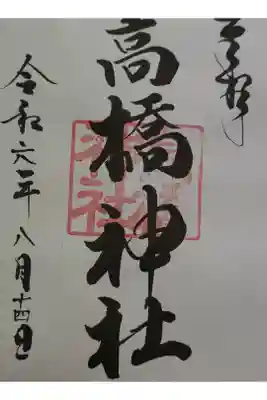 奉拝
高橋神社
令和六年八月十四日